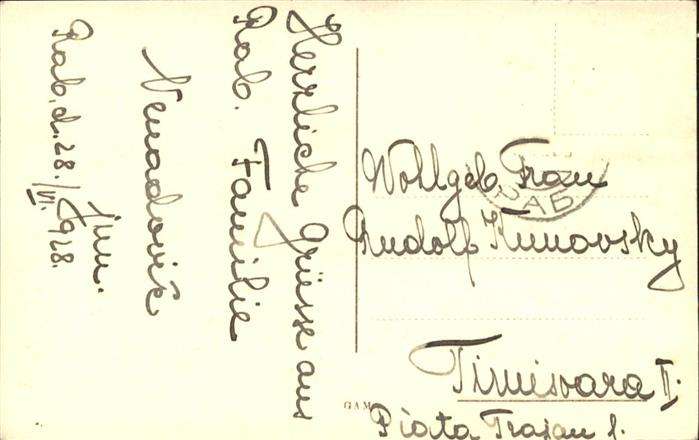 Herzliche Grüsse aus
Rab. Familie
Nenadović
jun.
Rab, d. 28./VI. 1928.
Wollgeb. Frau
Rudolf Kunovsky
Timisoara II.
Piata Traian 1.
RAB